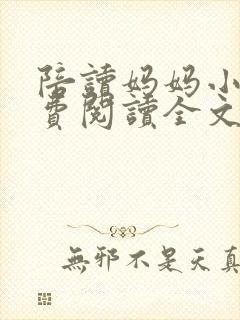 陪讀妈妈小
費閱讀全文
無邪不是天真